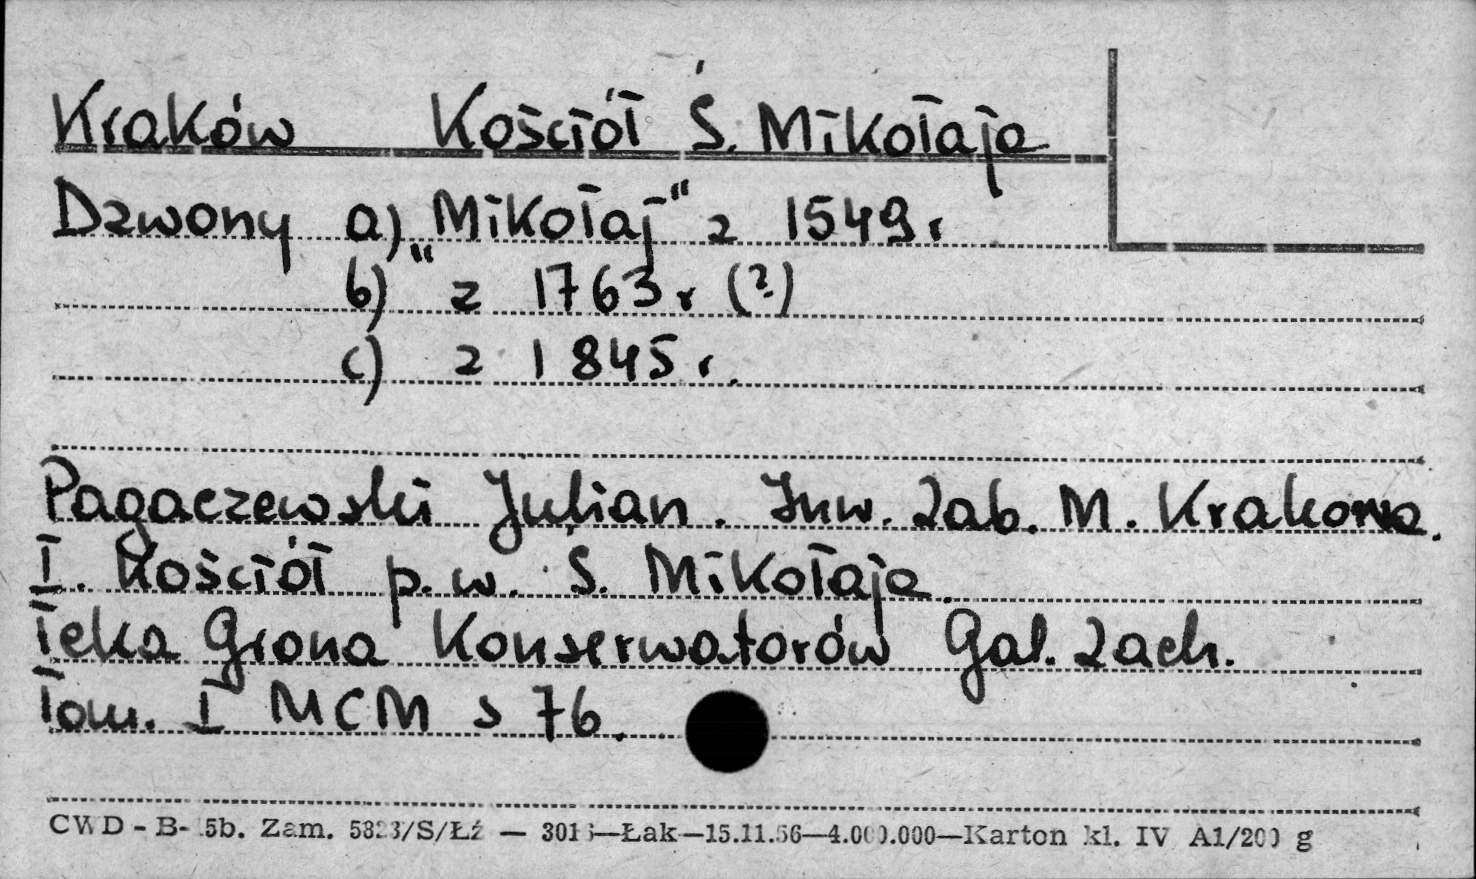 Kraków Kościół Ś. Mikołaja
Dzwony a) „Mikołaj" z 1549 r
b) z 1763 r (?)
c) z 1845 r.
Pagaczewski Julian. Inw. Zab. M. Krakowa.
I. Kościół p.w. Ś. Mikołaja.
Teka Grona Konserwatorów Gal. Zach.
Tom. I MCM s 76.
CWD - B- 5b. Zam. /S/Łź — —Łak—15.11.56—4.000.000—Karton kl. IV A1/200 g